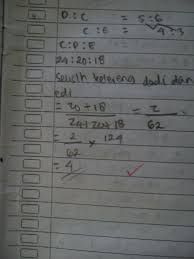 D : C = 5 : 6
C : E = 4 : 3
C : D : E
24 : 20 : 18
selisih kelereng dadi dan
edi
= 20 + 18 = 2
24 + 20 + 18 62
= 2 × 124
62
= 4